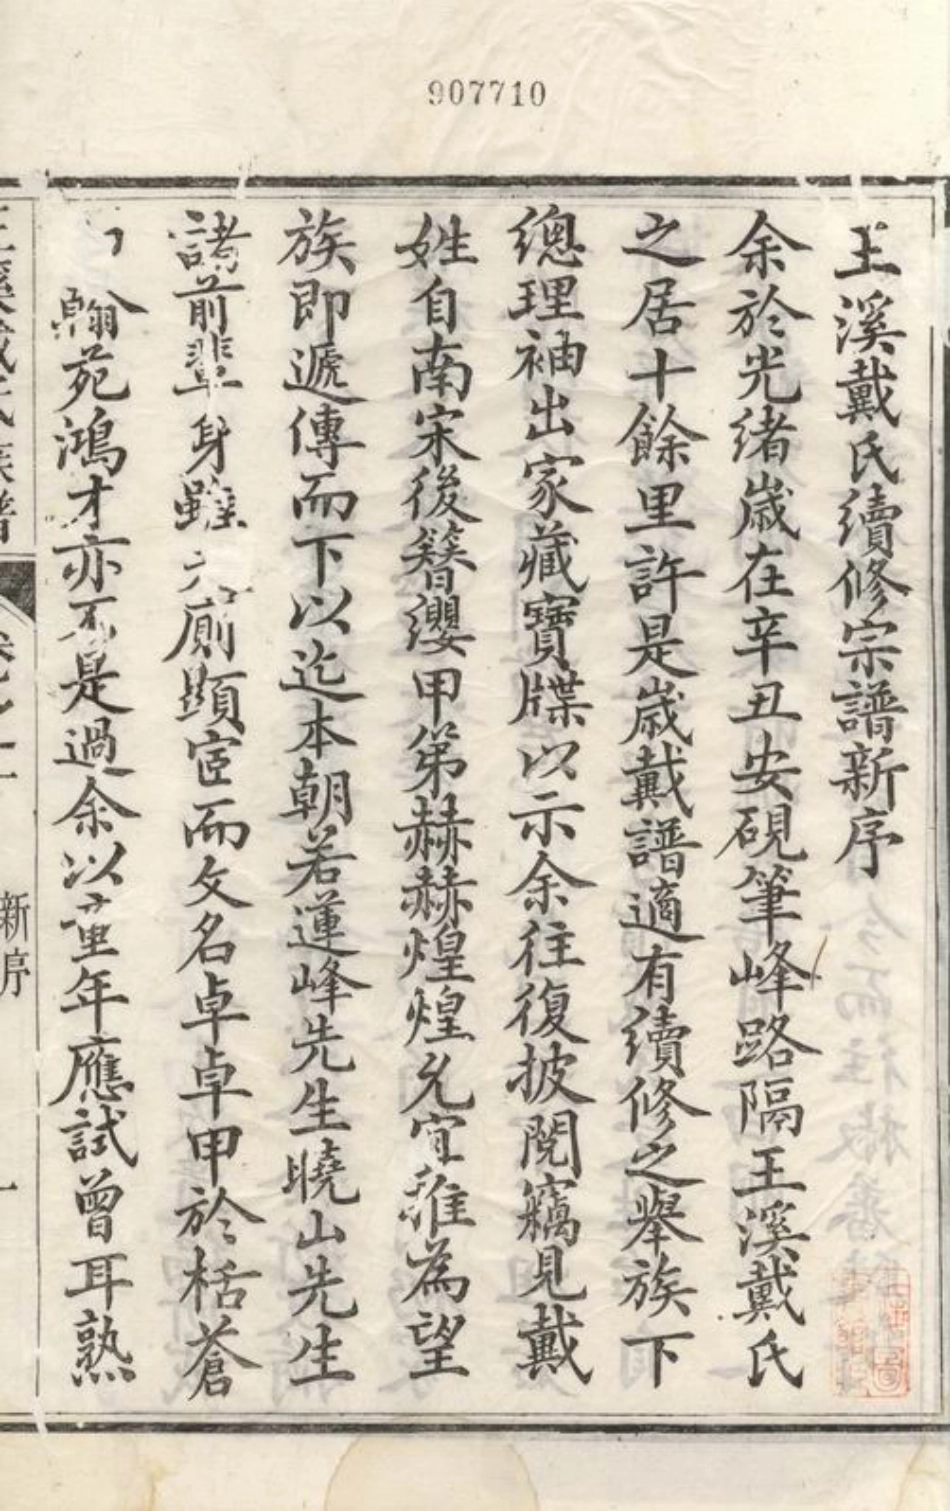 907710
王溪戴氏續修宗譜新序
余於光緒歲在辛丑安硯筆峰路隔王溪戴氏
之居十餘里許是歲戴譜適有續修之舉族下
總理袖出家藏寶牒以示余往復披閱竊見戴
姓自南宋後簪纓甲第赫赫煌煌允宜推為望
族即遞傳而下以迄本朝若蓮峰先生曉山先生
諸前輩身雖廁顯宦而文名卓卓甲於栝蒼
翰苑鴻才亦不是過余以童年應試曾耳熟
王溪戴氏族譜
卷之一
新序
一